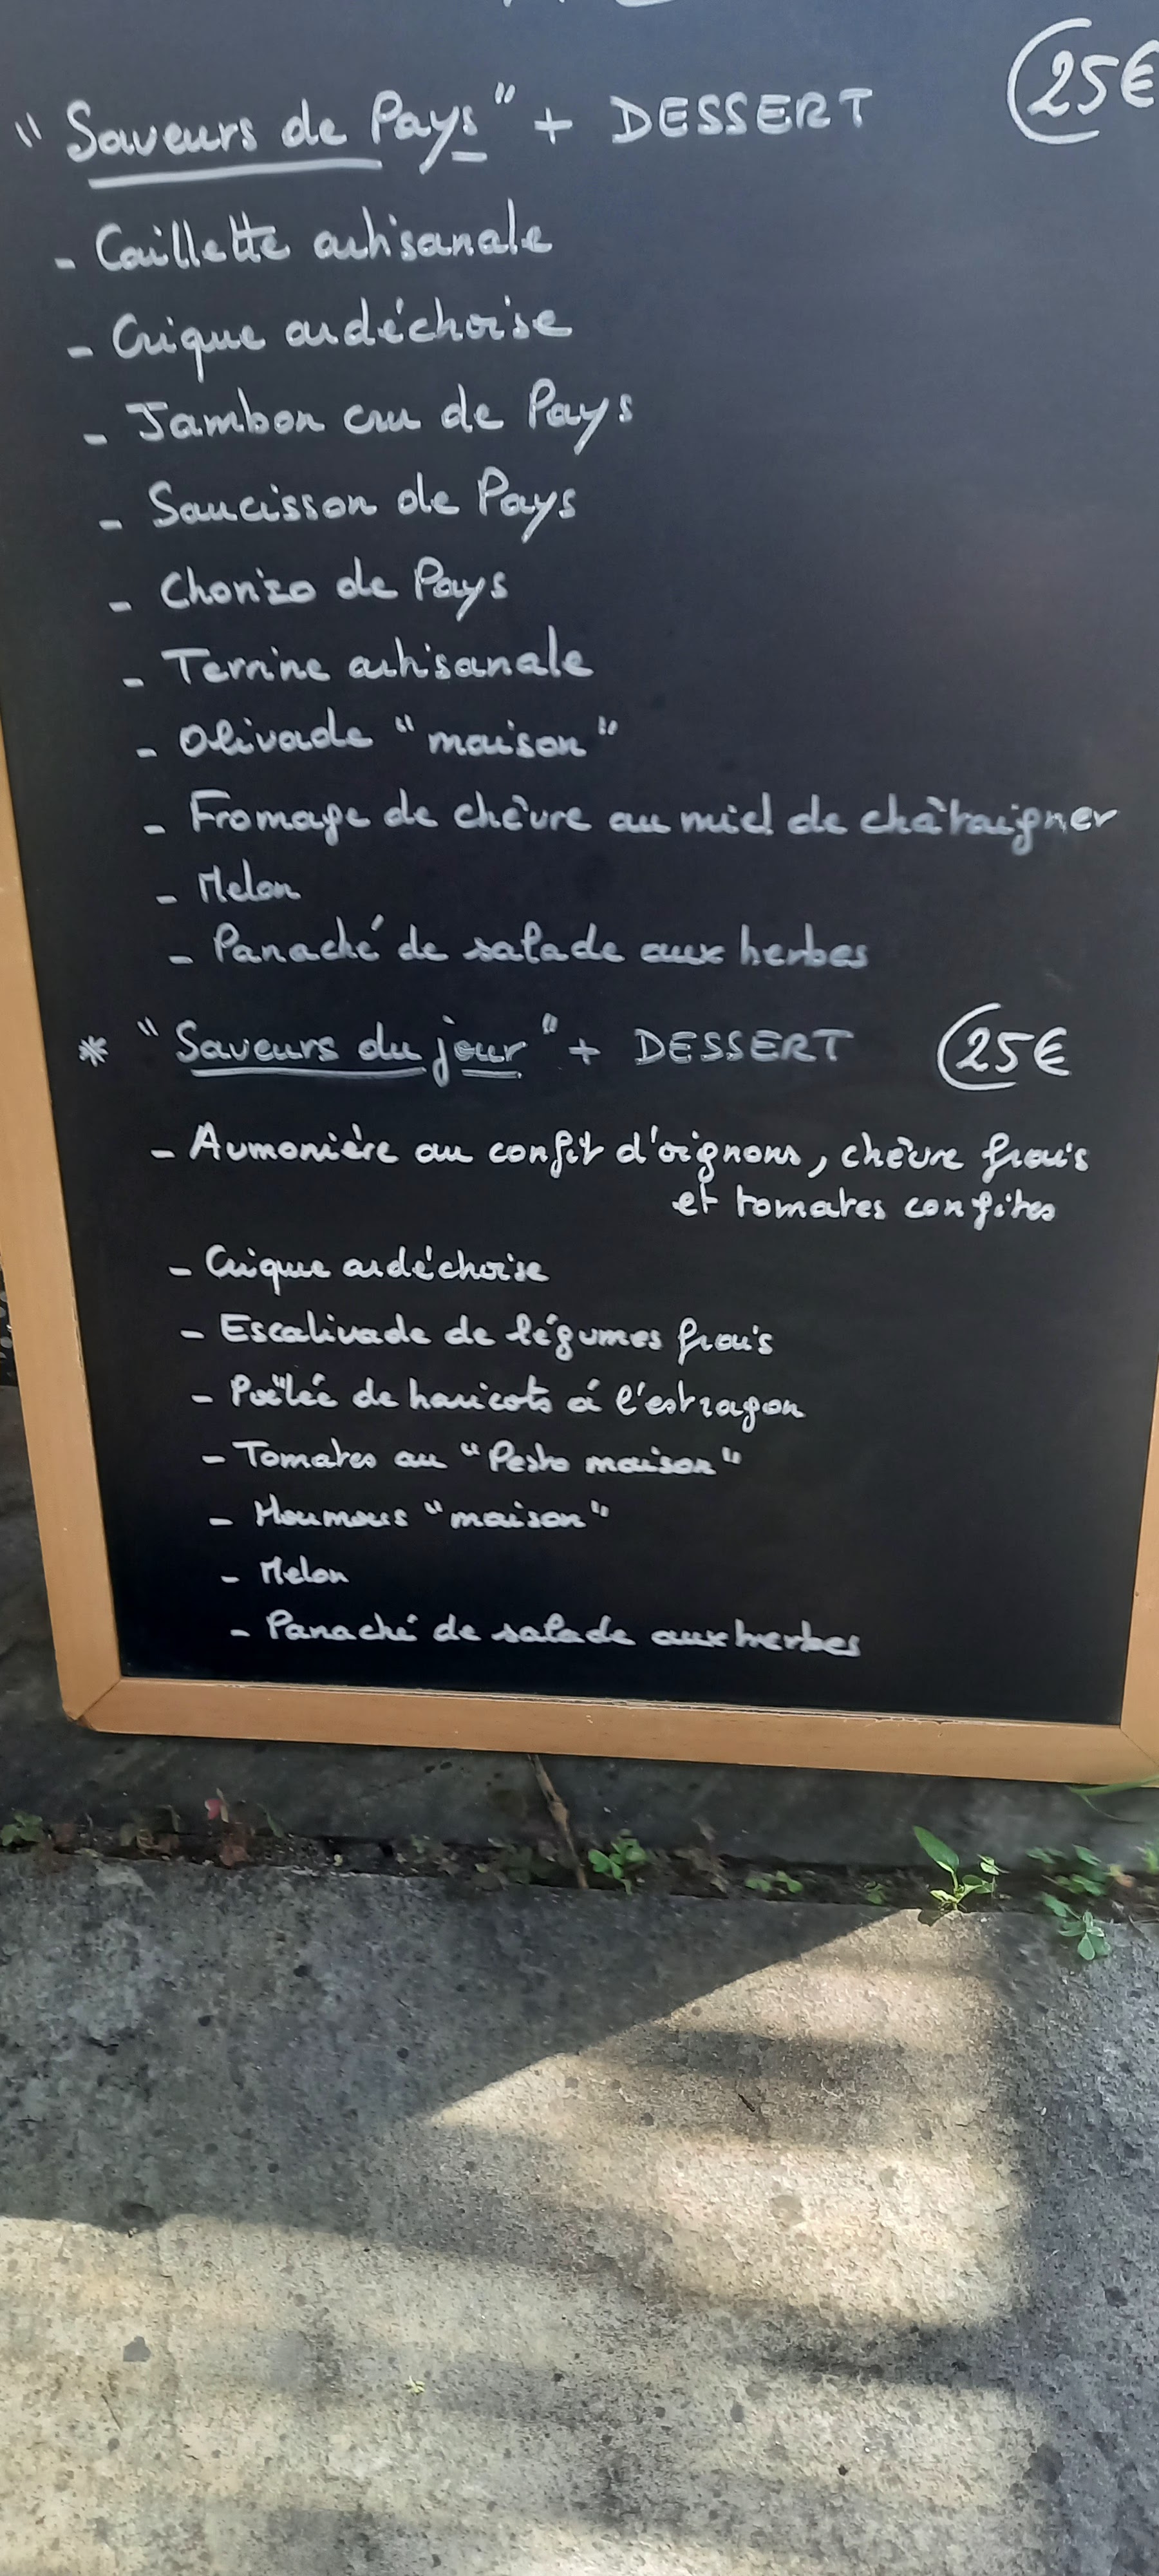 25€
"Saveurs de Pays" + DESSERT
- Caillette artisanale
- Crique ardéchoise
- Jambon cru de Pays
- Saucisson de Pays
- Chorizo de Pays
- Terrine artisanale
- Olivade "maison"
- Fromage de chèvre au miel de châtaigner
- Melon
- Panaché de salade aux herbes
* "Saveurs du jour" + DESSERT 25€
- Aumonière au confit d'oignons, chèvre frais
et tomates confites
- Crique ardéchoise
- Escalivade de légumes frais
- Poêlée de haricots à l'estragon
- Tomates au "Pesto maison"
- Houmous "maison"
- Melon
- Panaché de salade aux herbes